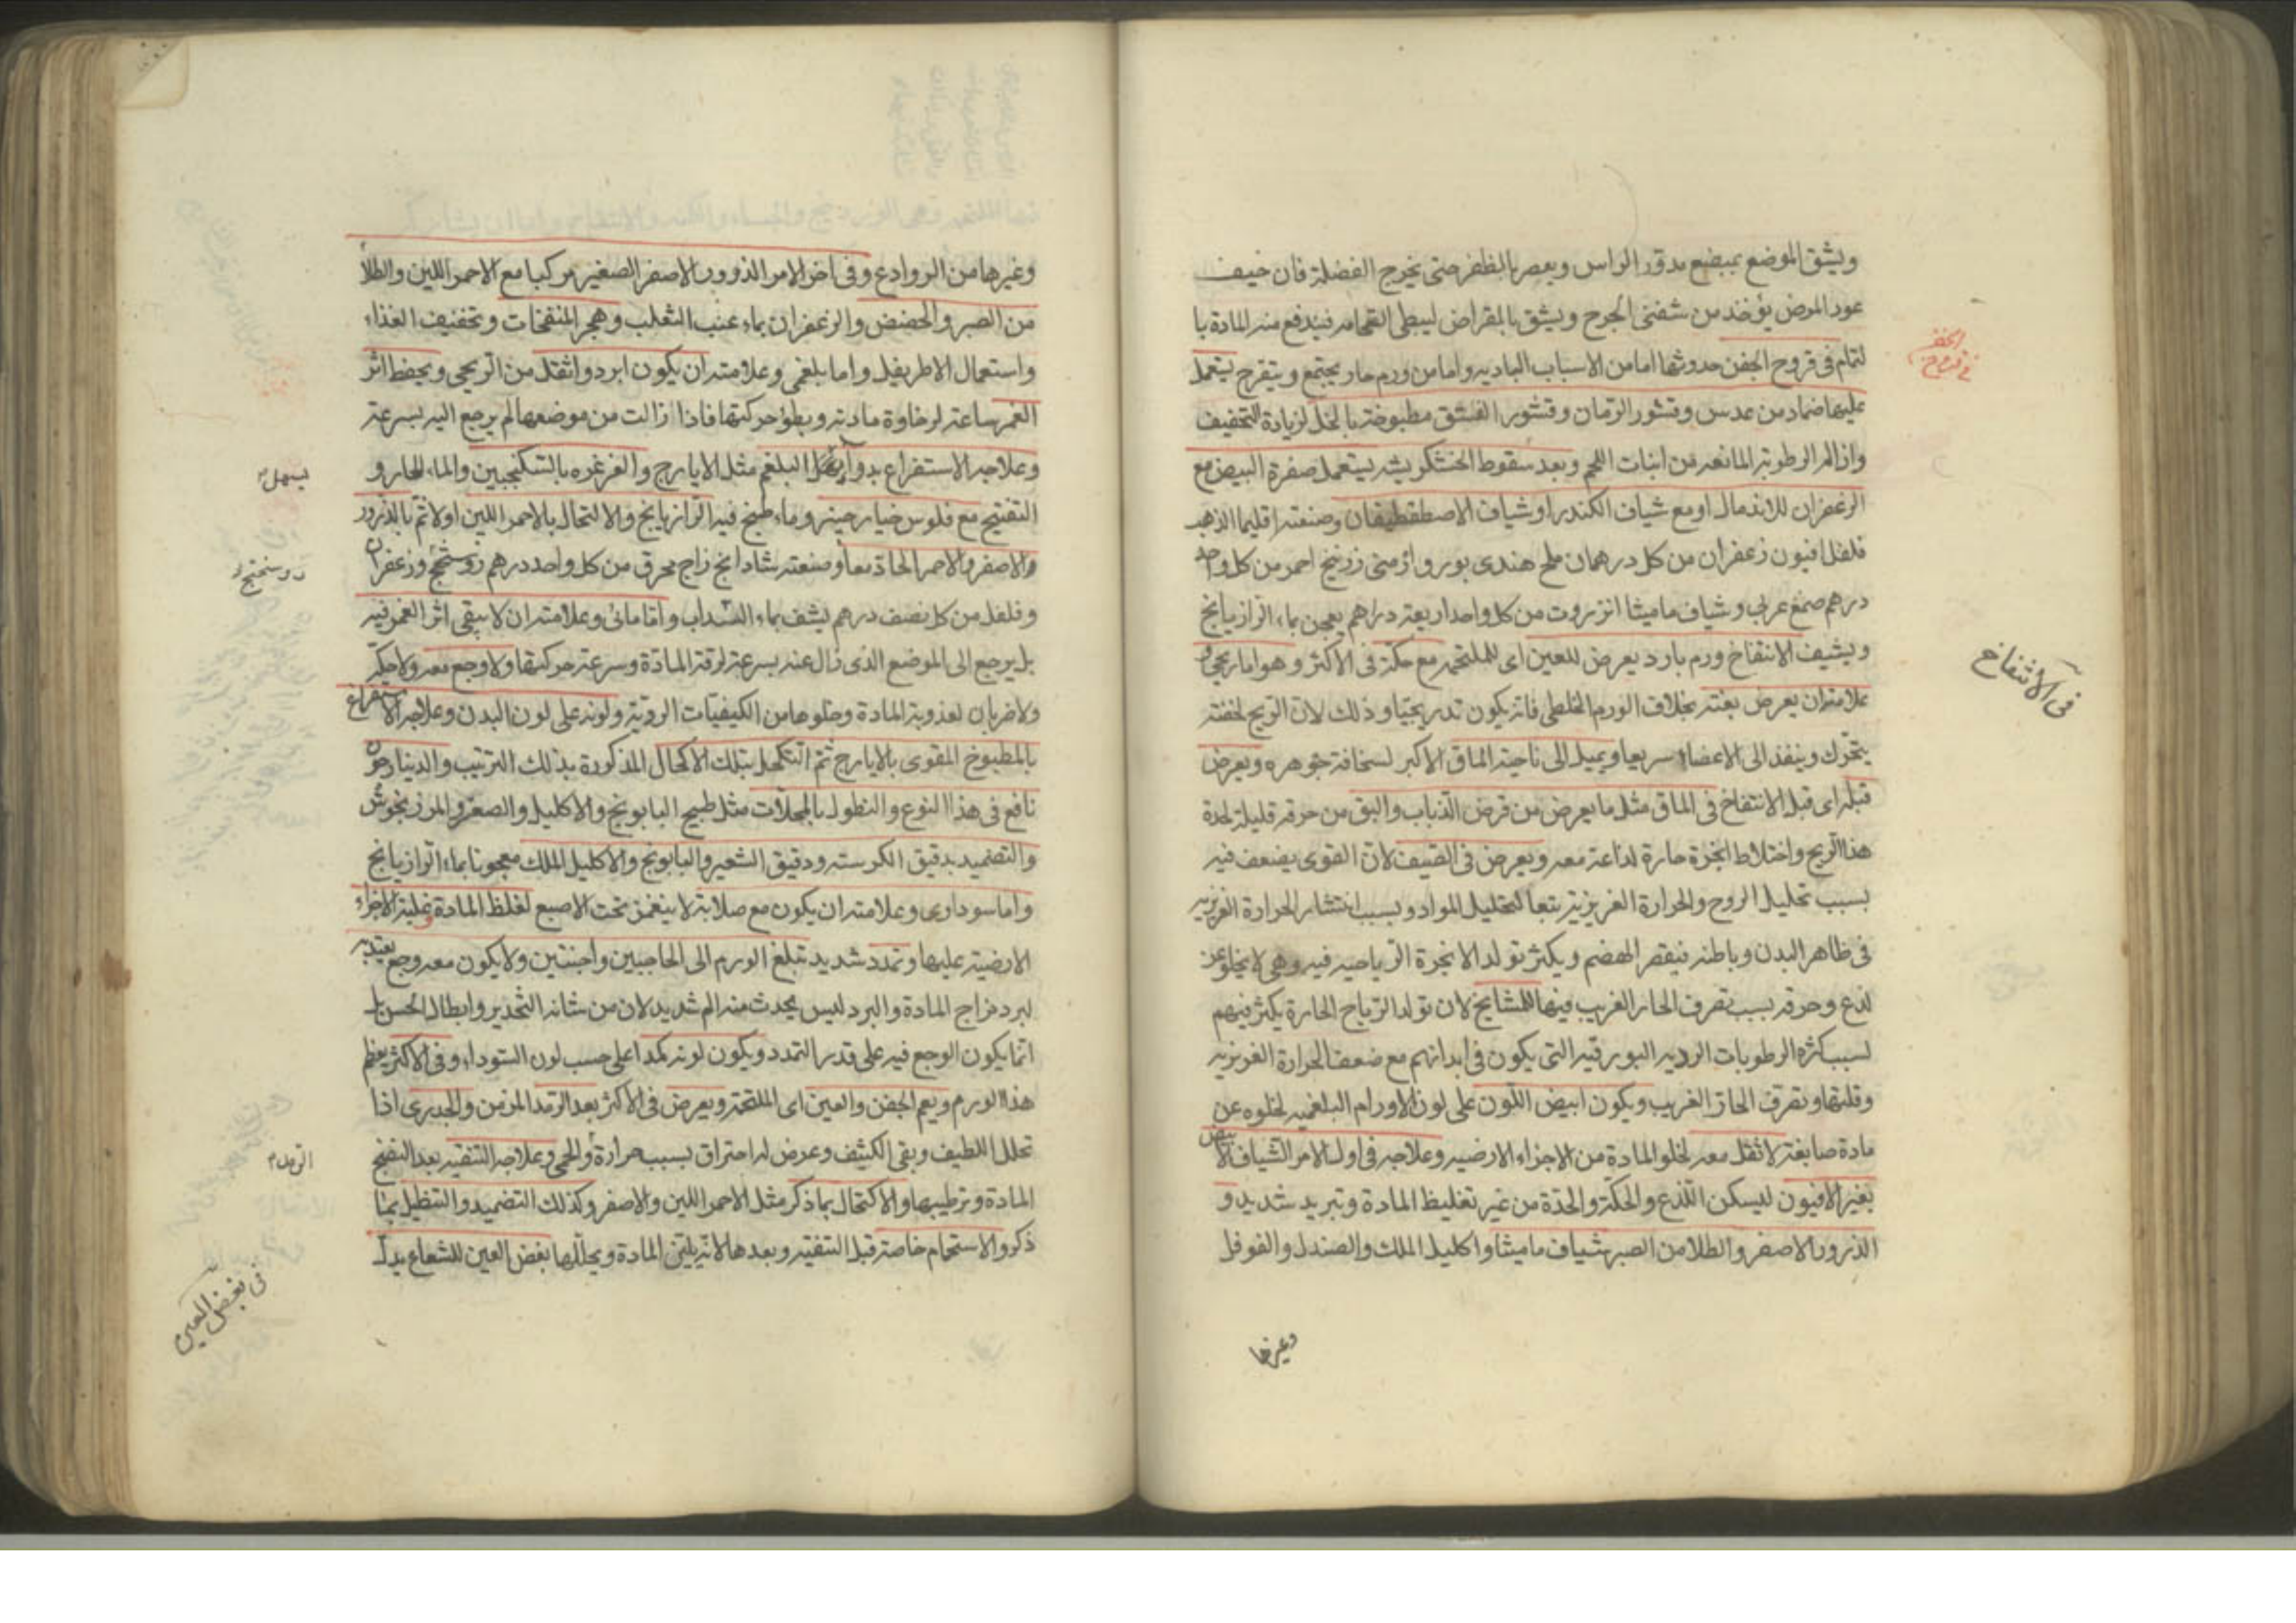 ويشق الموضع بمبضع مدوّر الراس ويعصر بالظفر حتى يخرج الفضلة فان خيف
عود المرض يؤخذ من شفتى الجرح ويشق بالمقراض ليبطى التحامه فيندفع منه المادة با
لتمام فى قروح الجفن حدوثها اما من الاسباب الباديه واما من ورم حار يجتمع ويتقرح يستعمل
عليها ضماد من عدس وقشور الرمان وقشور الفستق مطبوخة بالخل لزيادة التجفيف
وازاله الرطوبة المانعه من انبات اللحم وبعد سقوط الخشكريشه يستعمل صفرة البيض مع
الزعفران للاندمال او مع شياف الكندر او شياف الاصطفطيقان وصنعته اقليميا الذهب
فلفل افيون زعفران من كل درهمان ملح هندى بورق ارمنى زرنيخ احمر من كل واحد
درهم صمغ عربى وشياف ماميثا انزروت من كل واحد اربعة دراهم يعجن بماء الرازيانج
ويشيف الانتفاخ ورم بارد يعرض للعين اى للملتحمه مع حكة فى الاكثر وهو اما ريحى و
علامته ان يعرض بغتة بخلاف الورم الخلطى فانه يكون تدريجيا وذلك لان الريح لخفته
يتحرك وينفذ الى الاعضاء سريعا ويميل الى ناحية الماق الاكبر لسخافة جوهره ويعرض
قبله اى قبل الانتفاخ فى الماق مثل ما يعرض من قرض الذباب والبق من حرقه قليلة لحدة
هذا الريح واختلاط ابخرة حارة لذاعة معه ويعرض فى الصيف لان القوى يضعف فيه
بسبب تحليل الروح والحرارة الغريزية تبعا لتحليل المواد وبسبب انتشار الحرارة الغريزيه
فى ظاهر البدن وباطنه فيقصر الهضم ويكثر تولد الابخرة الرياحيه فيه وهى لا يخلو عن
لذع وحرقه بسبب تصرف الحار الغريب فيها للمشايخ لان تولد الرياح الحارة يكثر فيهم
لسبب كثرة الرطوبات الرديه البورقيه التى يكون فى ابدانهم مع ضعف الحرارة الغريزيه
وقلتها وتصرف الحار الغريب ويكون ابيض اللون على لون الاورام البلغميه لخلوه عن
مادة صابغة لا ثقل معه لخلو المادة من الاجزاء الارضيه وعلاجه فى اول الامر الشياف الابيض
بغير الافيون ليسكن اللذع والحكة والحدة من غير تغليظ المادة وتبريد شديد و
الذرور الاصفر والطلا من الصبر شياف ماميثا واكليل الملك والصندل والفوفل
فى قروح الجفن
فى الانتفاخ
وغيرها
وغيرها من الروادع وفى اخر الامر الذرور الاصفر الصغير مركبا مع الاحمر اللين والطلأ
من الصبر والحضض والزعفران بماء عنب الثعلب وهجر المنفخات وتخفيف الغذاء
واستعمال الاطريفل واما بلغمى وعلامته ان يكون ابرد واثقل من الريحى ويحفظ اثر
الغمز ساعة لرخاوة مادته وبطؤ حركتها فاذا زالت من موضعها لم يرجع اليه بسرعة
وعلاجه الاستفراغ بدواء البلغم مثل الايارج والغرغره بالسكنجبين والماء الحار و
التفتيح مع فلوس خيار جينر وماء طبخ فيه الرازيانج والاكتحال بالاحمر اللين اولا ثم بالذرور
والاصفر والاحمر الحادّ معا وصنعته شادانج زاج محرق من كل واحد درهم روسختج وزعفران
وفلفل من كل نصف درهم يشف بماء السداب واما مائى وعلامته ان لا يبقى اثر الغمز فيه
بل يرجع الى الموضع الذى زال عنه بسرعة لرقة المادة وسرعة حركتها ولا وجع معه ولا حكه
ولا ضربان لعذوبة المادة وخلوها من الكيفيات الردية ولونه على لون البدن وعلاجه الاستفراغ
بالمطبوخ المقوى بالايارج ثم التكحل بتلك الاكحال المذكورة بذلك الترتيب والدينارجون
نافع فى هذا النوع والنطول بالمحللات مثل طبيخ البابونج والاكليل والصعتر والمرزنجوش
والتضميد بدقيق الكرسنه ودقيق الشعير والبابونج والاكليل الملك معجونا بماء الرازيانج
واما سوداوى وعلامته ان يكون مع صلابة لا ينغمز تحت الاصبع لغلظ المادة وغلبة الاجزاء
الارضيه عليها وتمدد شديد تبلغ الورم الى الحاجبين واجنتين ولا يكون معه وجع يعتد به
لبرد مزاج المادة والبرد ليس يحدث منه الم شديد لان من شانه التخدير وابطال الحس بل
انما يكون الوجع فيه على قدر التمدد ويكون لونه كمدا على حسب لون السوداء وفى الاكثر يعظم
هذا الورم ويعم الجفن والعين اى الملتحمة ويعرض فى الاكثر بعد الرمد المزمن والجدرى اذا
تحلل اللطيف وبقى الكثيف وعرض له احتراق بسبب حرارة والحمى وعلاجه التنقيه بعد النضج
المادة وترطيبها والاكتحال بما ذكر مثل الاحمر اللين والاصفر وكذلك التضميد والتنطيل بما
ذكر والاستحمام خاصة قبل التنقيه وبعدها لانه يلين المادة ويحللها بغض العين للشعاع يدل
يسهل
روسختج
الرمد
فى بغض العين